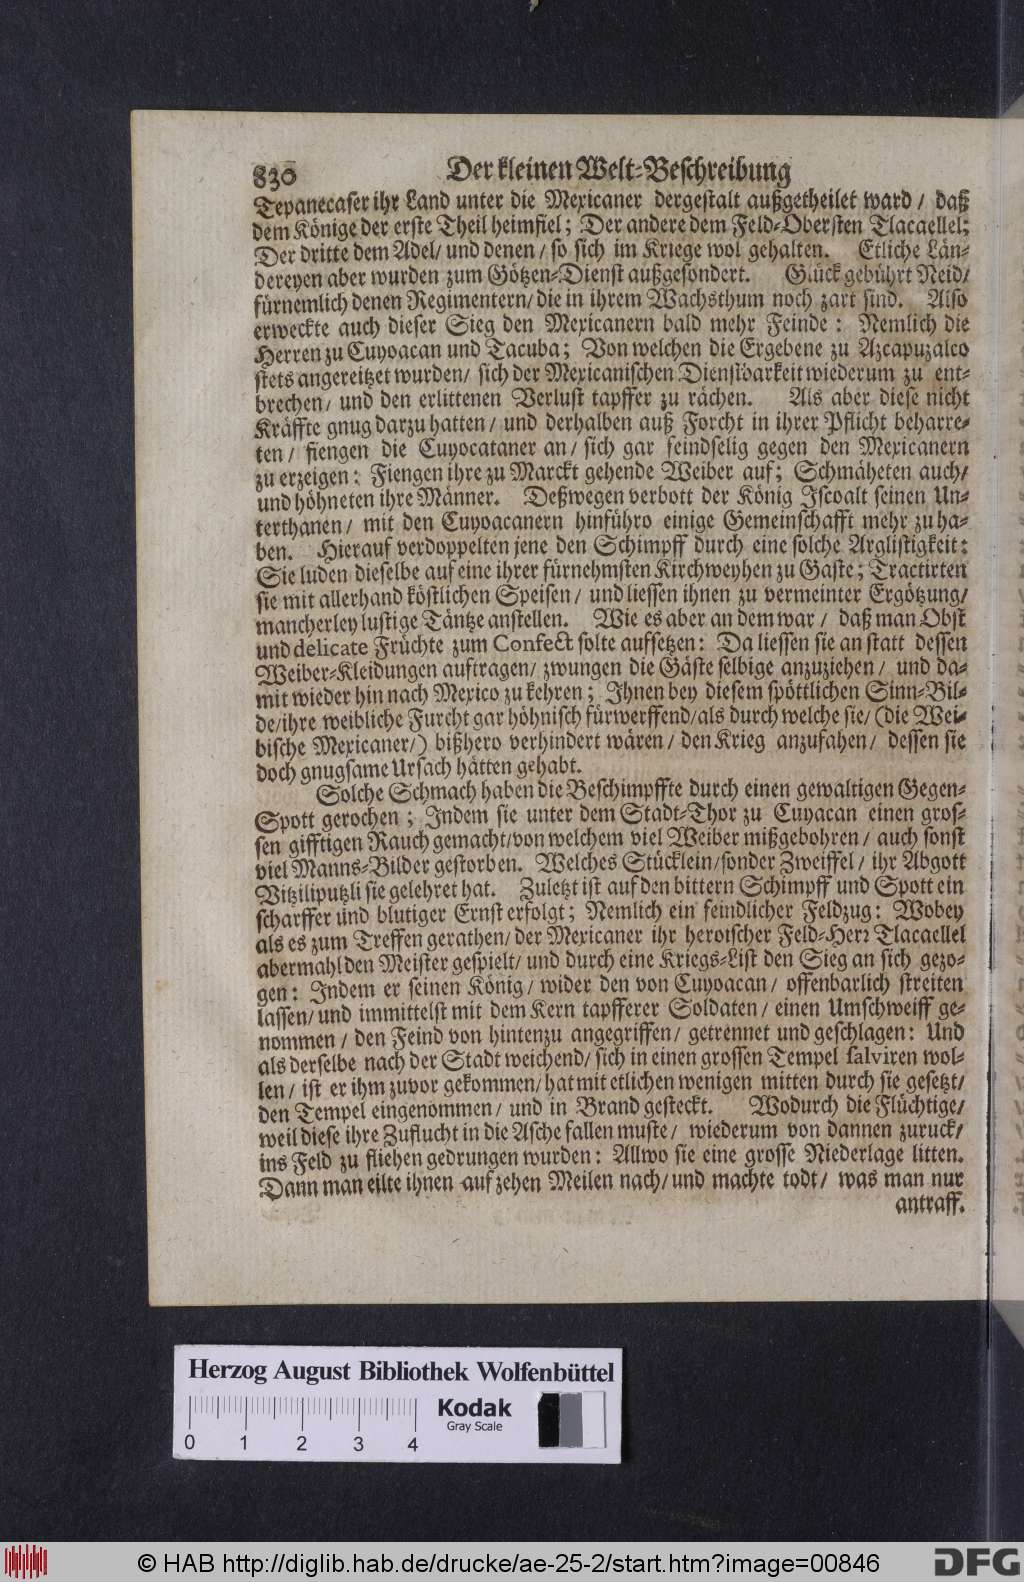 830 Der kleinen Welt-Beschreibung
Tepanecaser ihr Land unter die Mexicaner dergestalt außgetheilet ward / daß
dem Könige der erste Theil heimfiel; Der andere dem Feld-Obersten Tlacaellel;
Der dritte dem Adel/ und denen/ so sich im Kriege wol gehalten. Etliche Län-
dereyen aber wurden zum Götzen-Dienst außgesondert. Glück gebührt Neid/
fürnemlich denen Regimentern/ die in ihrem Wachsthum noch zart sind. Also
erweckte auch dieser Sieg den Mexicanern bald mehr Feinde: Nemlich die
Herren zu Cuyoacan und Tacuba; Von welchen die Ergebene zu Azcapuzalco
stets angereitzet wurden/ sich der Mexicanischen Dienstbarkeit wiederum zu ent-
brechen/ und den erlittenen Verlust tapffer zu rächen. Als aber diese nicht
Kräffte gnug darzu hatten/ und derhalben auß Forcht in ihrer Pflicht beharre-
ten / fiengen die Cuyocataner an/ sich gar feindselig gegen den Mexicanern
zu erzeigen: Fiengen ihre zu Marckt gehende Weiber auf; Schmäheten auch/
und höhneten ihre Männer. Deßwegen verbott der König Iscoalt seinen Un-
terthanen/ mit den Cuyoacanern hinführo einige Gemeinschafft mehr zu ha-
ben. Hierauf verdoppelten jene den Schimpff durch eine solche Arglistigkeit:
Sie luden dieselbe auf eine ihrer fürnehmsten Kirchweyhen zu Gaste; Tractirten
sie mit allerhand köstlichen Speisen/ und liessen ihnen zu vermeinter Ergötzung/
mancherley lustige Täntze anstellen. Wie es aber an dem war / daß man Obst
und delicate Früchte zum Confect solte aufsetzen: Da liessen sie an statt dessen
Weiber-Kleidungen auftragen/ zwungen die Gäste selbige anzuziehen/ und da-
mit wieder hin nach Mexico zu kehren; Ihnen bey diesem spöttlichen Sinn-Bil-
de/ ihre weibliche Furcht gar höhnisch fürwerffend/ als durch welche sie/ (die Wei-
bische Mexicaner/) bißhero verhindert wären/ den Krieg anzufahen/ dessen sie
doch gnugsame Ursach hätten gehabt.
Solche Schmach haben die Beschimpffte durch einen gewaltigen Gegen-
Spott gerochen; Indem sie unter dem Stadt-Thor zu Cuyacan einen gros-
sen gifftigen Rauch gemacht/ von welchem viel Weiber mißgebohren/ auch sonst
viel Manns-Bilder gestorben. Welches Stücklein/ sonder Zweiffel/ ihr Abgott
Vitziliputzli sie gelehret hat. Zuletzt ist auf den bittern Schimpff und Spott ein
scharffer und blutiger Ernst erfolgt; Nemlich ein feindlicher Feldzug: Wobey
als es zum Treffen gerathen/ der Mexicaner ihr heroischer Feld-Herr Tlacaellel
abermahl den Meister gespielt/ und durch eine Kriegs-List den Sieg an sich gezo-
gen: Indem er seinen König/ wider den von Cuyoacan/ offenbarlich streiten
lassen/ und immittelst mit dem Kern tapfferer Soldaten/ einen Umschweiff ge-
nommen/ den Feind von hintenzu angegriffen/ getrennet und geschlagen: Und
als derselbe nach der Stadt weichend/ sich in einen grossen Tempel salviren wol-
len/ ist er ihm zuvor gekommen/ hat mit etlichen wenigen mitten durch sie gesetzt/
den Tempel eingenommen/ und in Brand gesteckt. Wodurch die Flüchtige/
weil diese ihre Zuflucht in die Asche fallen muste/ wiederum von dannen zuruck/
ins Feld zu fliehen gedrungen wurden: Allwo sie eine grosse Niederlage litten.
Dann man eilte ihnen auf zehen Meilen nach/ und machte todt/ was man nur
antraff.
Herzog August Bibliothek Wolfenbüttel
Kodak
Gray Scale
0 1 2 3 4
© HAB http://diglib.hab.de/drucke/ae-25-2/start.htm?image=00846
DFG